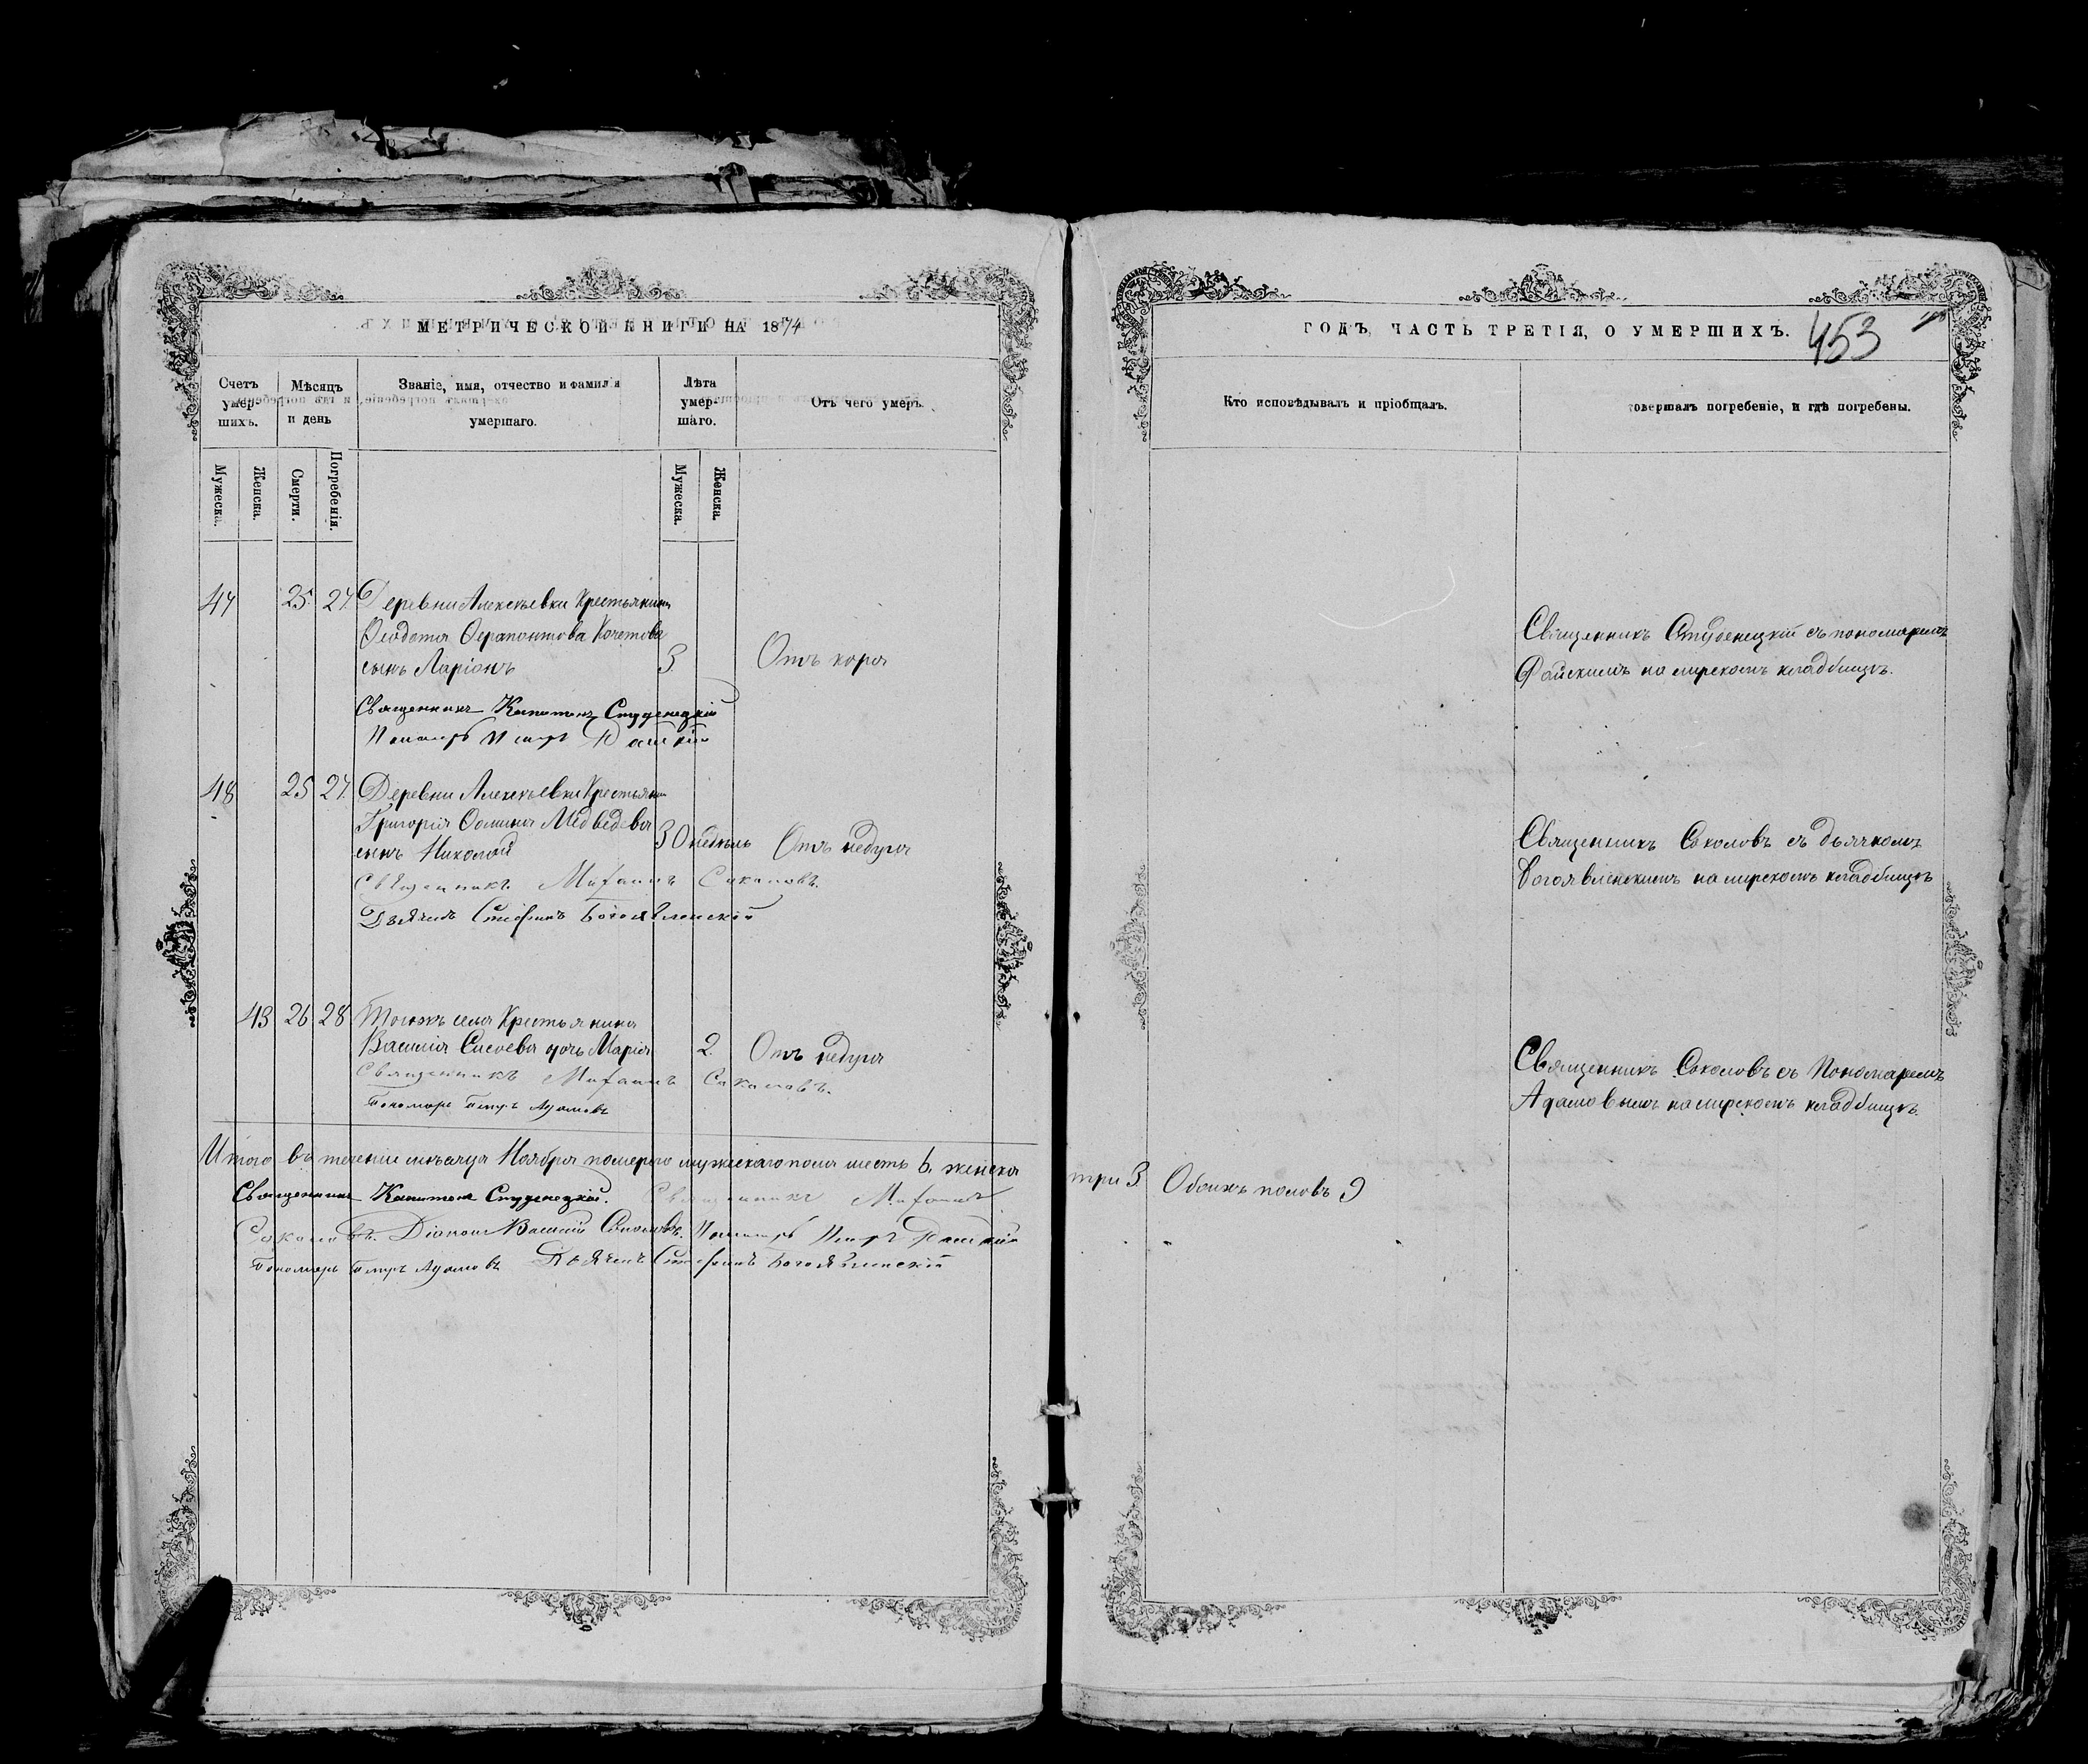 МЕТРИЧЕСКОЙ КНИГИ НА 1874
Счетъ умер- шихъ.
Мѣсяцъ и день
Званіе, имя, отчество и фамилія умершаго.
Лѣта умер- шаго.
Отъ чего умеръ.
Мужеска.
Женска.
Смерти.
Погребенія.
Мужеска.
Женска.
47 25 27 Деревни Алексѣевки Крестьянина
Ѳеодота Ѳерапонтова Кочетова
сынъ Ларіонъ 3. Отъ кори
Священникъ Капитонъ Студенецкій
Пономарь Петръ Райскій
48 25 27 Деревни Алексѣевки Крестьянина
Григорія Ѳомина Медведева
сынъ Николай 30 недѣль Отъ недуга
Священникъ Михаилъ Соколовъ.
Дьячекъ Стефанъ Богоявленскій
43 26 28 Тогожъ села Крестьянина
Василія Сысоева дочь Марія 2. Отъ недуга
Священникъ Михаилъ Соколовъ.
Пономарь Петръ Адамовъ
Итого въ теченіе мѣсяца Ноября померло мужескаго пола шесть 6. женска
Священникъ Капитонъ Студенецкій. Священникъ Михаилъ
Соколовъ. Діаконъ Василій Соколовъ. Пономарь Петръ Райскій
Пономарь Петръ Адамовъ Дьячекъ Стефанъ Богоявленскій
ГОДЪ, ЧАСТЬ ТРЕТІЯ, О УМЕРШИХЪ.
453
Кто исповѣдывалъ и пріобщалъ.
совершалъ погребеніе, и гдѣ погребены.
Священникъ Студенецкій съ пономаремъ
Райскимъ на мірскомъ кладбищѣ.
Священникъ Соколовъ съ дьячкомъ
Богоявленскимъ на мірскомъ кладбищѣ
Священникъ Соколовъ съ Пономаремъ
Адамовымъ на мірскомъ кладбищѣ.
три 3. Обоихъ половъ 9